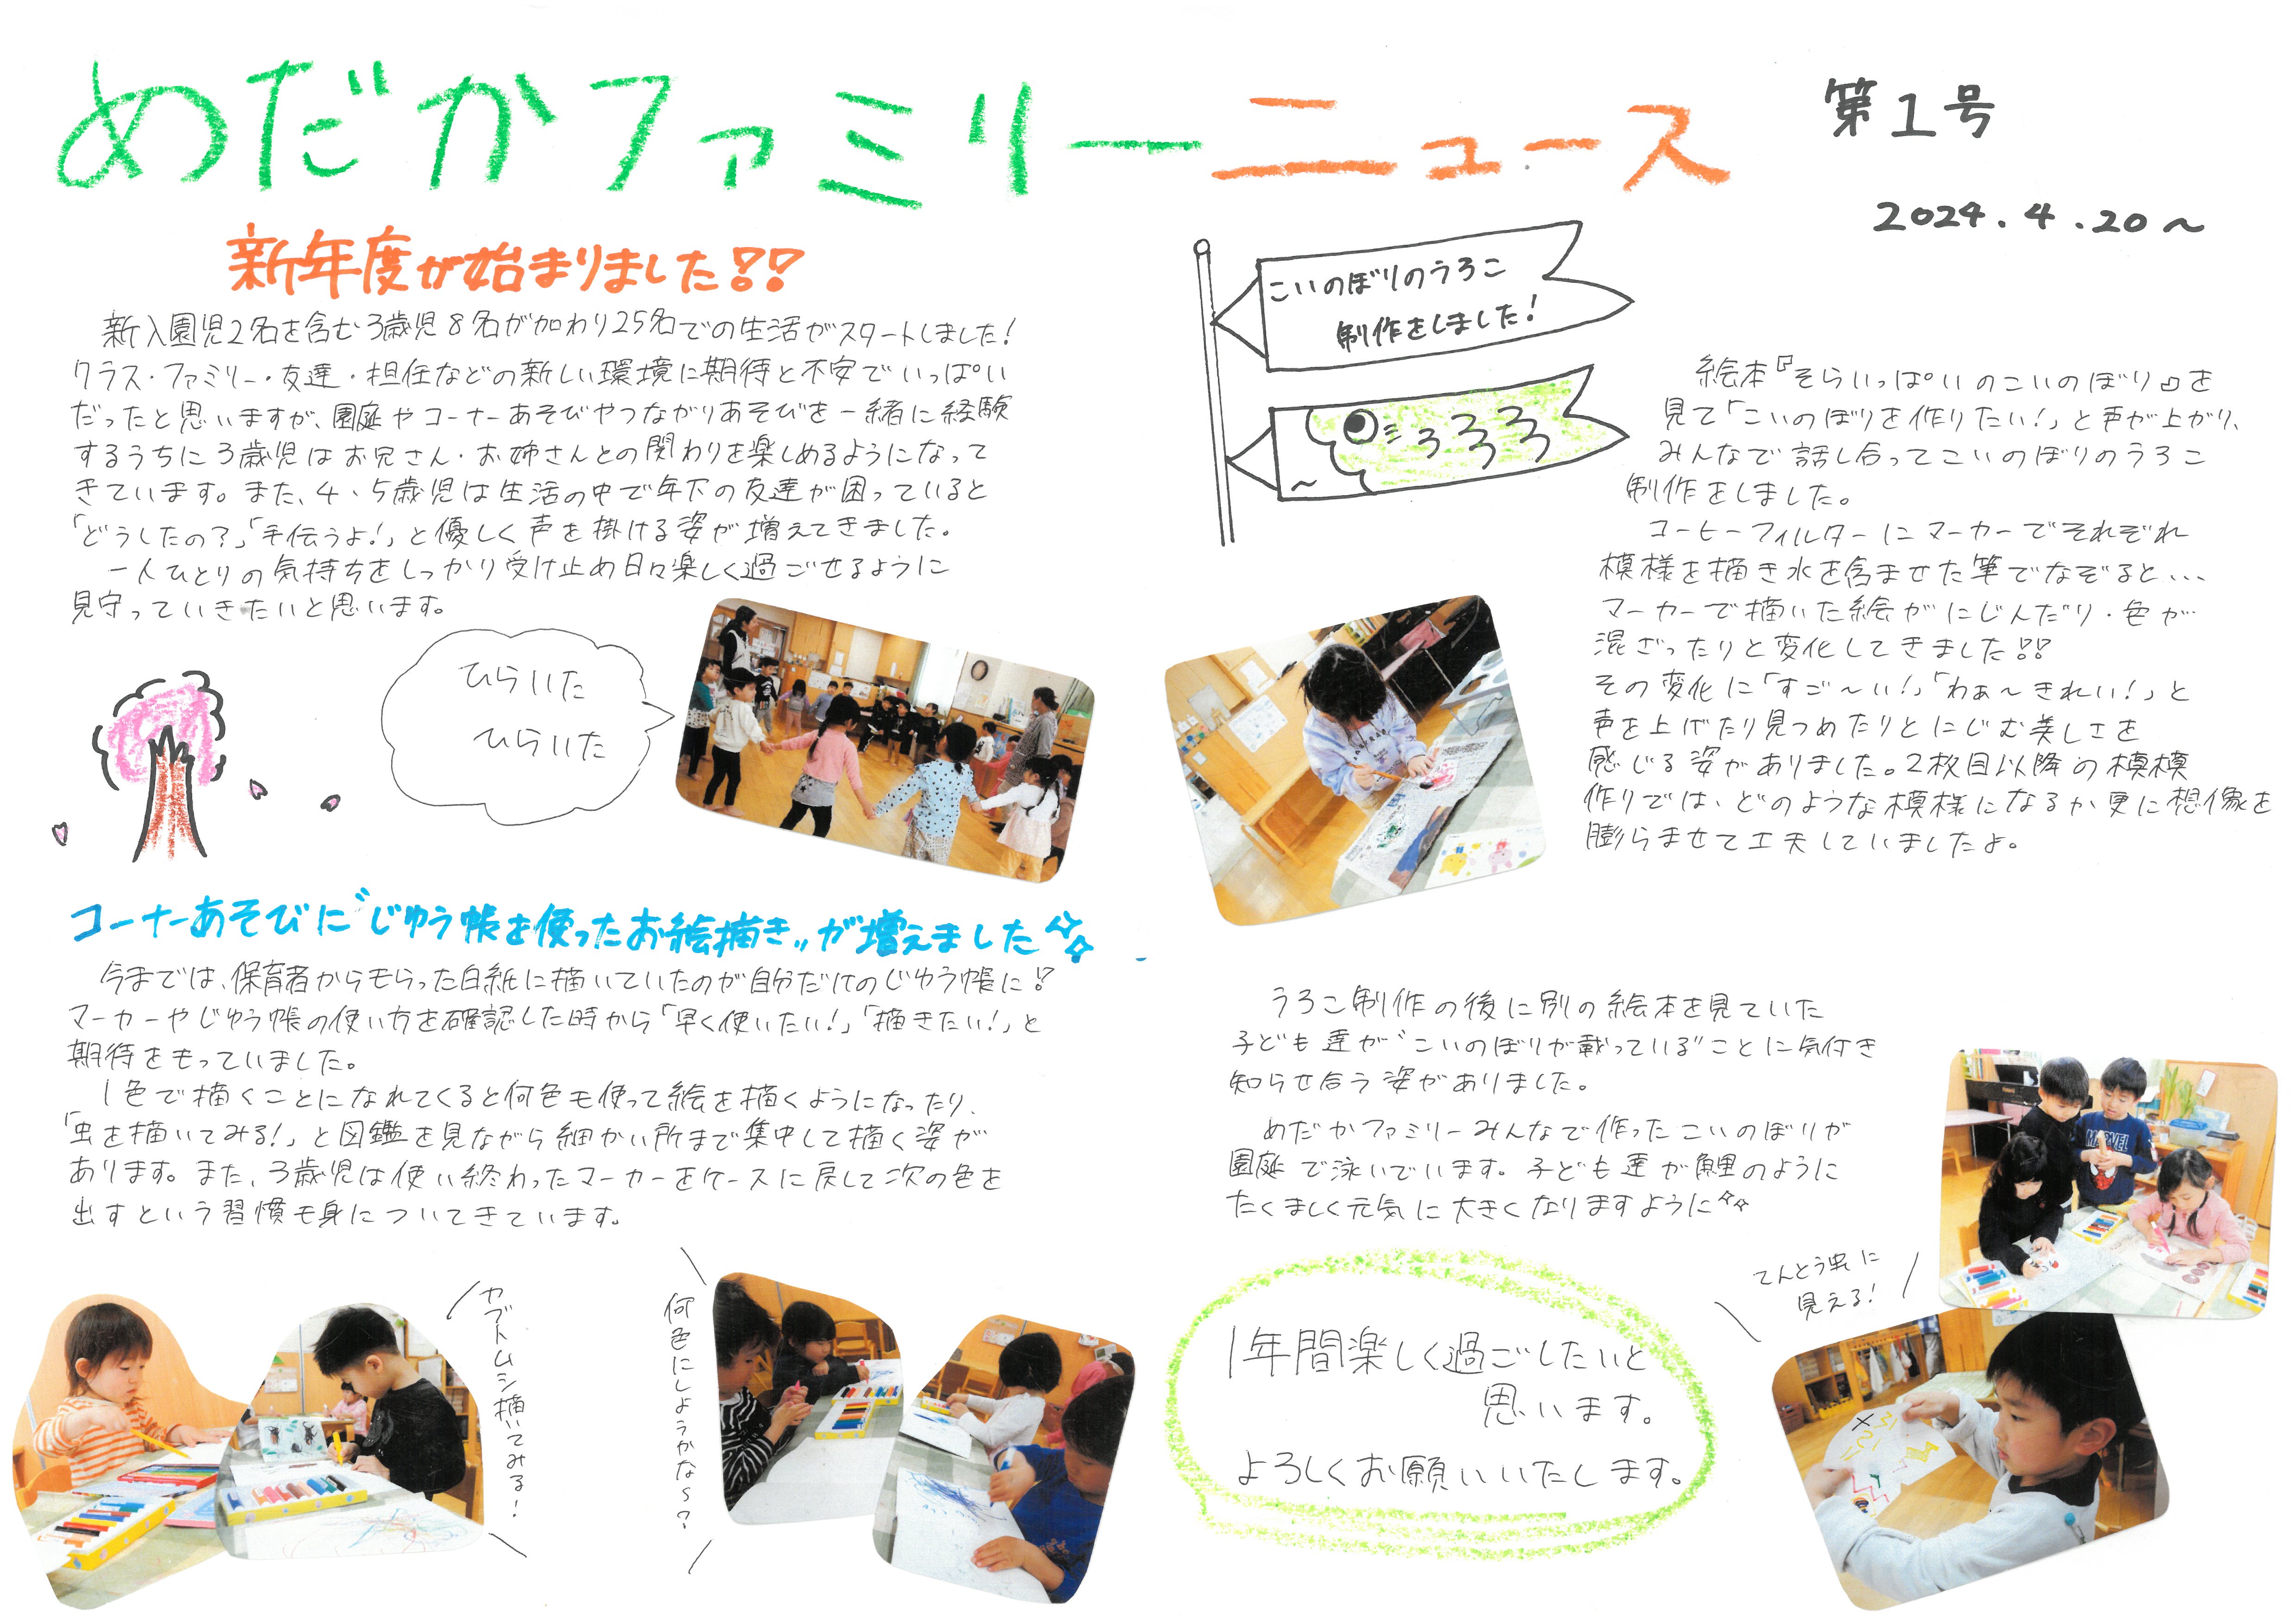 めだかファミリーニュース
第1号
2024.4.20〜
新年度が始まりました!!
新入園児2名を含む3歳児8名が加わり25名での生活がスタートしました!
クラス・ファミリー・友達・担任などの新しい環境に期待と不安でいっぱい
だったと思いますが、園庭やコーナーあそびやつながりあそびを一緒に経験
するうちに3歳児はお兄さん・お姉さんとの関わりを楽しめるようになって
きています。また、4、5歳児は生活の中で年下の友達が困っていると
「どうしたの?」「手伝うよ!」と優しく声を掛ける姿が増えてきました。
一人ひとりの気持ちをしっかり受け止め日々楽しく過ごせるように
見守っていきたいと思います。
ひらいた
ひらいた
コーナーあそびに"じゆう帳を使ったお絵描き"が増えました
今までは、保育者からもらった白紙に描いていたのが自分だけのじゆう帳に!?
マーカーやじゆう帳の使い方を確認した時から「早く使いたい!」「描きたい!」と
期待をもっていました。
1色で描くことになれてくると何色も使って絵を描くようになったり、
「虫を描いてみる!」と図鑑を見ながら細かい所まで集中して描く姿が
あります。また、3歳児は使い終わったマーカーをケースに戻して次の色を
出すという習慣も身についてきています。
カブトムシ描いてみる!
何色にしようかな〜?
こいのぼりのうろこ
制作をしました!
絵本『そらいっぱいのこいのぼり』を
見て「こいのぼりを作りたい!」と声が上がり、
みんなで話し合ってこいのぼりのうろこ
制作をしました。
コーヒーフィルターにマーカーでそれぞれ
模様を描き水を含ませた筆でなぞると…
マーカーで描いた絵がにじんだり・色が
混ざったりと変化してきました!!
その変化に「すご〜い!」「わぁ〜きれい!」と
声を上げたり見つめたりとにじむ美しさを
感じる姿がありました。2枚目以降の模模
作りでは、どのような模様になるか更に想像を
膨らませて工夫していましたよ。
うろこ制作の後に別の絵本を見ていた
子ども達が"こいのぼりが載っている"ことに気付き
知らせ合う姿がありました。
めだかファミリーみんなで作ったこいのぼりが
園庭で泳いでいます。子ども達が鯉のように
たくましく元気に大きくなりますように
てんとう虫に
見える!
MARVEL
1年間楽しく過ごしたいと
思います。
よろしくお願いいたします。